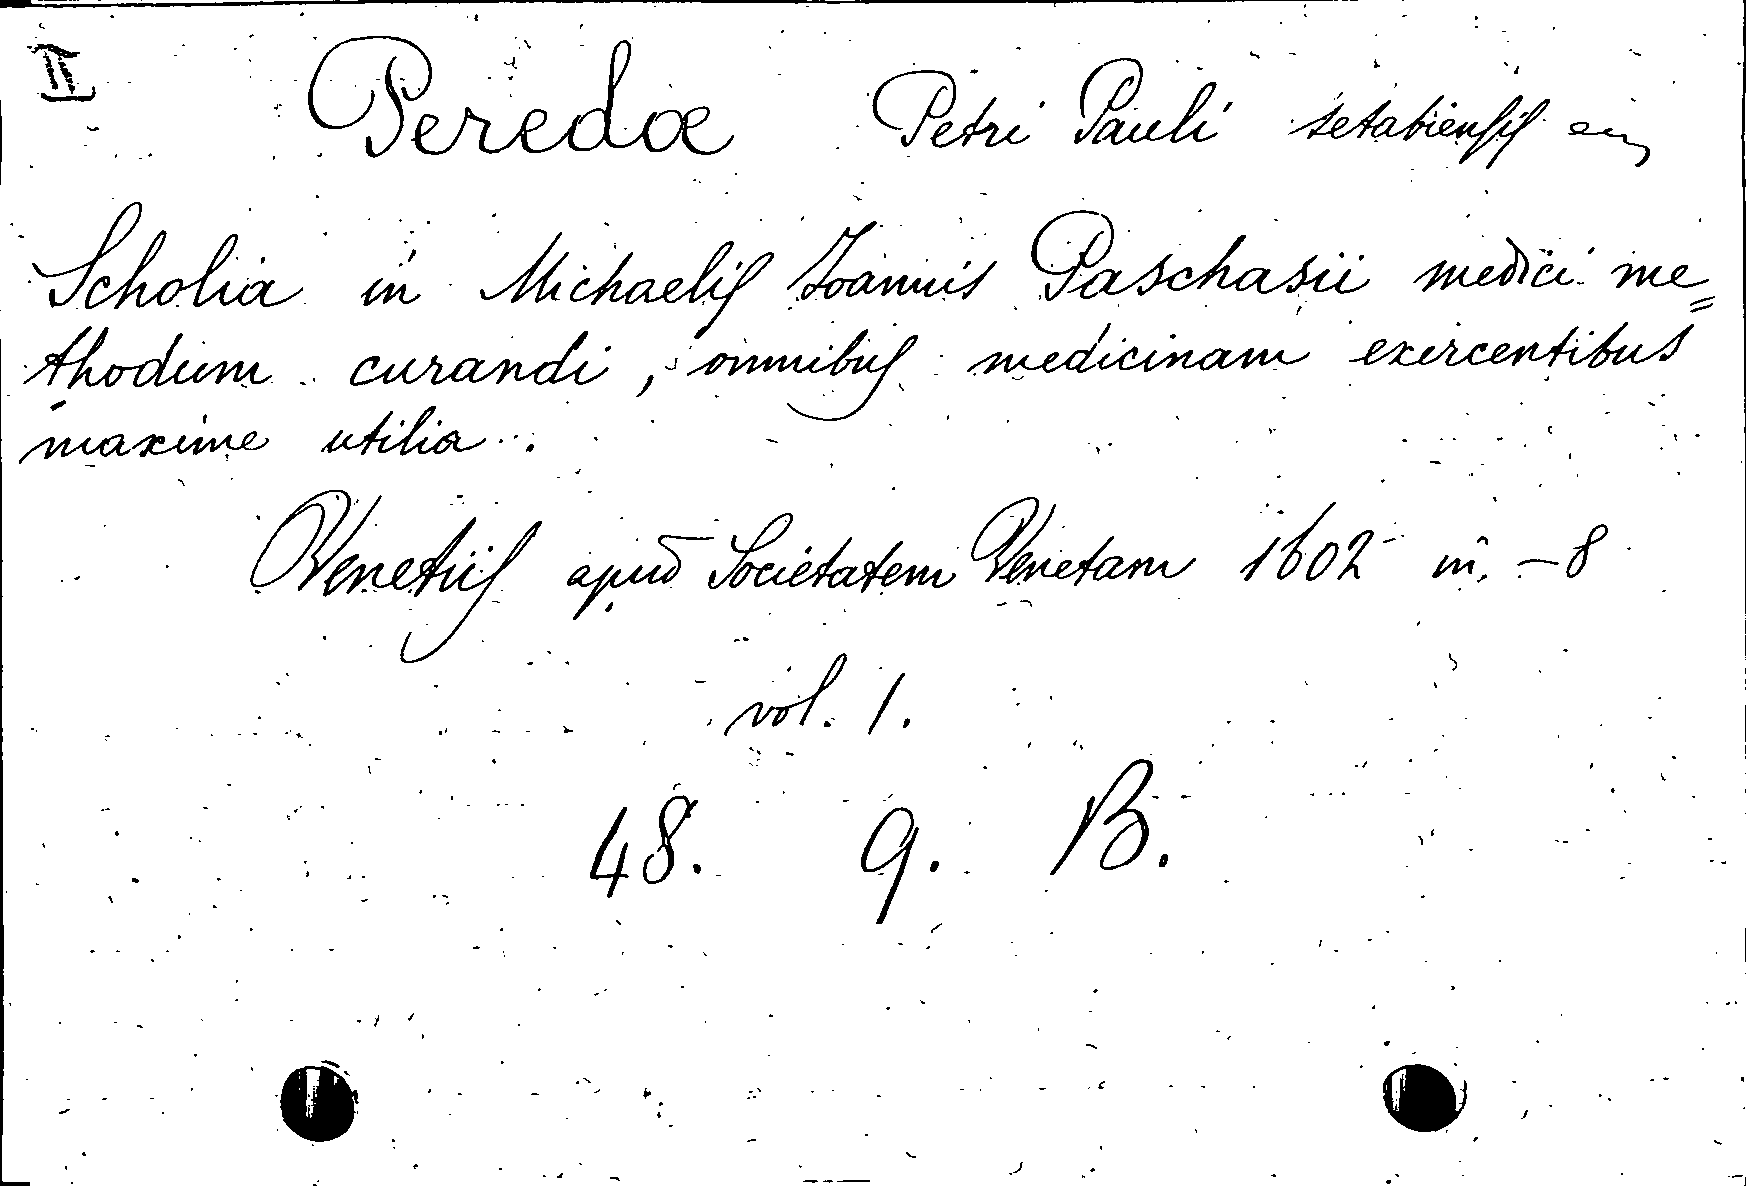 II
Peredæ Petri Pauli setabiensis
Scholia in Michaelis Ioannis Paschasii medici me=
thodum curandi, omnibus medicinam exercentibus
maxime utilia.
Venetiis apud Societatem Venetam 1602 in. - 8
vol. 1.
48. 9. B.